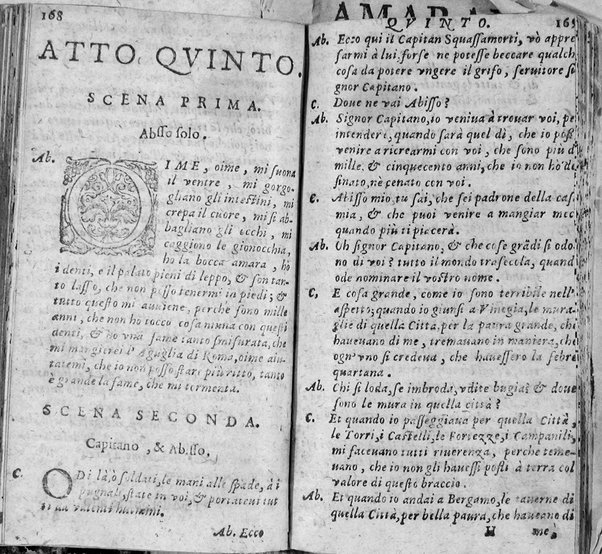 168
ATTO QVINTO.
SCENA PRIMA.
Abſſo ſolo.
Ab. OIME, oime, mi ſuona
il ventre, mi gorgo-
gliano gli inteſtini, mi
crepa il cuore, mi ſi ab-
bagliano gli occhi, mi
caggiono le gionocchia,
ho la bocca amara, hò
i denti, e il palato pieni di leppo, & ſon tan-
to laſſo, che non poſſo tenermi in piedi; &
tutto queſto mi auuiene, perche ſono mille
anni, che non ho tocco coſa niuna con queſti
denti, & ho vna fame tanto ſmiſurata, che
mi mangierei l'Aguglia di Roma, oime aiu-
tatemi, che io non poſſo ſtare più ritto, tanto
è grande la fame, che mi tormenta.
SCENA SECONDA.
Capitano, & Abiſſo.
C. ODi là, ò ſoldati, le mani alle ſpade, à i
pugnali, ſtate in voi, & portateui tut
ti da valenti huomini.
Ab. Ecco
AMARAN
QVINTO. 16
Ab. Ecco qui il Capitan Squaſſamorti, vò appre
ſarmi à lui, forſe ne poteſſe beccare qualch
coſa da potere vngere il grifo, ſeruitore ſi
gnor Capitano.
C. Doue ne vai Abiſſo?
Ab. Signor Capitano, io veniua à trouar voi, pe
intendere, quando ſarà quel dì, che io poſſ
venire a ricrearmi con voi, che ſono più d
mille, & cinquecento anni, che io non hò de
ſinato, nè cenato con voi.
C. Abiſſo mio, tu ſai, che ſei padrone della caſ
mia, & che puoi venire a mangiar mec
quando più ti piacerà.
Ab. Oh ſignor Capitano, & che coſe grādi ſi odo
no di voi? tutto il mondo traſecola, quand
ode nominare il voſtro nome.
C. E coſa grande, come io ſono terribile nell'
aſpetto; quando io giunſi a Vinegia, le mura
glie di quella Citta, per la paura grande, chi
haueuano di me, tremauano in maniera, che
ogn'vno ſi credeua, che haueſſero la febre
quartana.
Ab. Chi ſi loda, ſe imbroda, vdite bugia? & doue
ſono le mura in quella città?
C. Et quando io paſſeggiaua per quella Città,
le Torri, i Caſtelli, le Fortezze, i Campanili,
mi faceuano tutti riuerenza, perche teme-
uano, che io non gli haueſſi poſti à terra col
valore di queſto braccio.
Ab. Et quando io andai a Bergamo, le tauerne di
quella Città, per bella paura, che hauean di
H me,